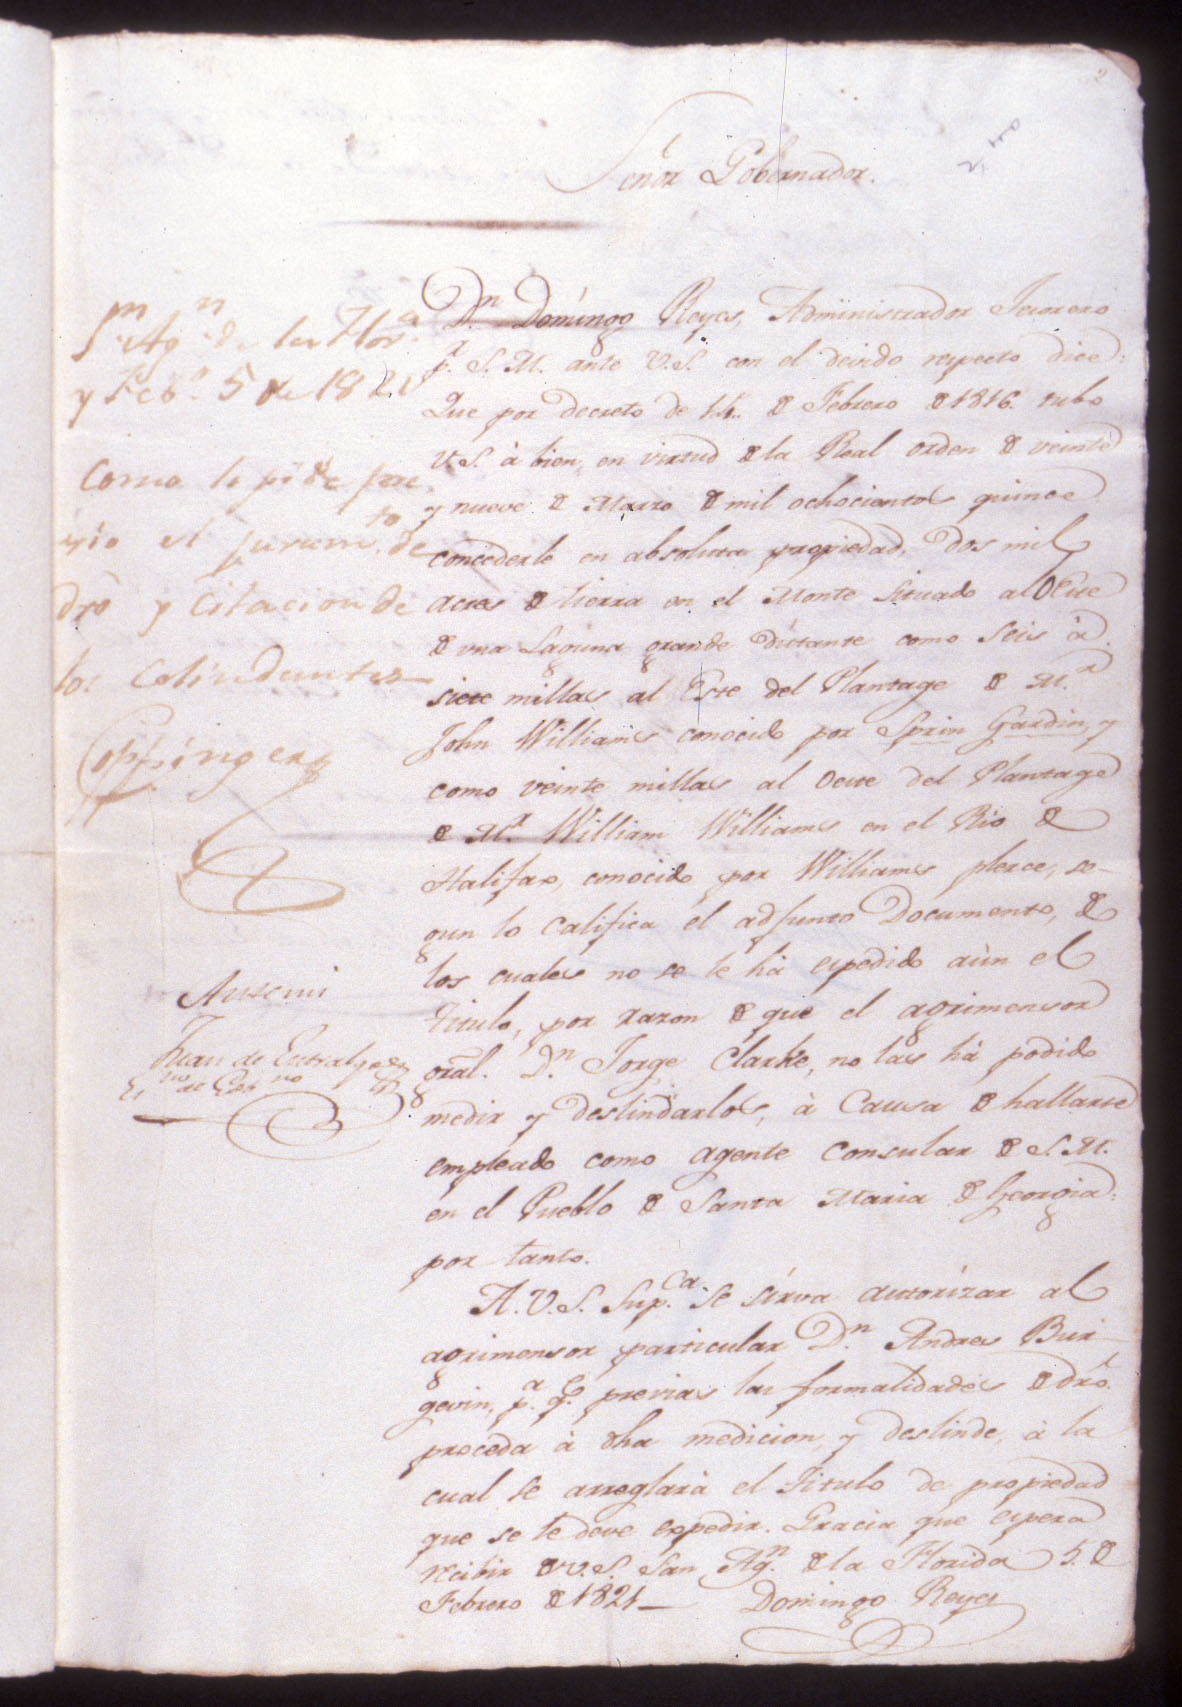 2
Señor Gobernador.
Sn. Agn. de las Flors.
y Febo. 5 de 1821
Como lo pide pre-
vio el juramto. de
dro y citacion de
los colindantes
Coppinger
Antemi
Juan de Entralgo
Esno. de Gobno.
Dn. Domingo Reyes, Administrador Tesorero
pr. S.M. ante V.S. con el devido respecto dice:
Que por decreto de 14.. de Febrero de 1816. tubo
V.S. à bien, en virtud de la Real orden de veinte
y nueve de Marzo de mil ochocientos quince
concederle en absoluta propiedad, dos mil
acres de tierra en el Monte situado al Oeste
de una Laguna grande distante como seis à
siete millas al Este del Plantage de Mr.
John Williams conocido por Sprin Gardin, y
como veinte millas al oeste del Plantage
de Mr. William Williams en el Rio de
Halifax, conocido por Williams plerce, se-
gun lo califica el adjunto Documento, de
los cuales no se le hà espedido aùn el
titulo, por razon de que el agrimensor
gral. Dn. Jorge Clarke, no las hà podido
medir y deslindarlos, à causa de hallarse
empleado como agente consular de S.M.
en el Pueblo de Santa Maria de Georgia:
por tanto.
A.V.S. Supca. se sirva autorizar al
agrimensor particular Dn. Andres Bur-
gevin, pa. qe. previas las formalidades de dro.
proceda à dha medicion, y deslinde, à la
cual se arreglarà el Titulo de propiedad
que se le deve expedir. Gracia que espera
recibir de V.S. San Agn. de la Florida 5. de
Febrero de 1821— Domingo Reyes